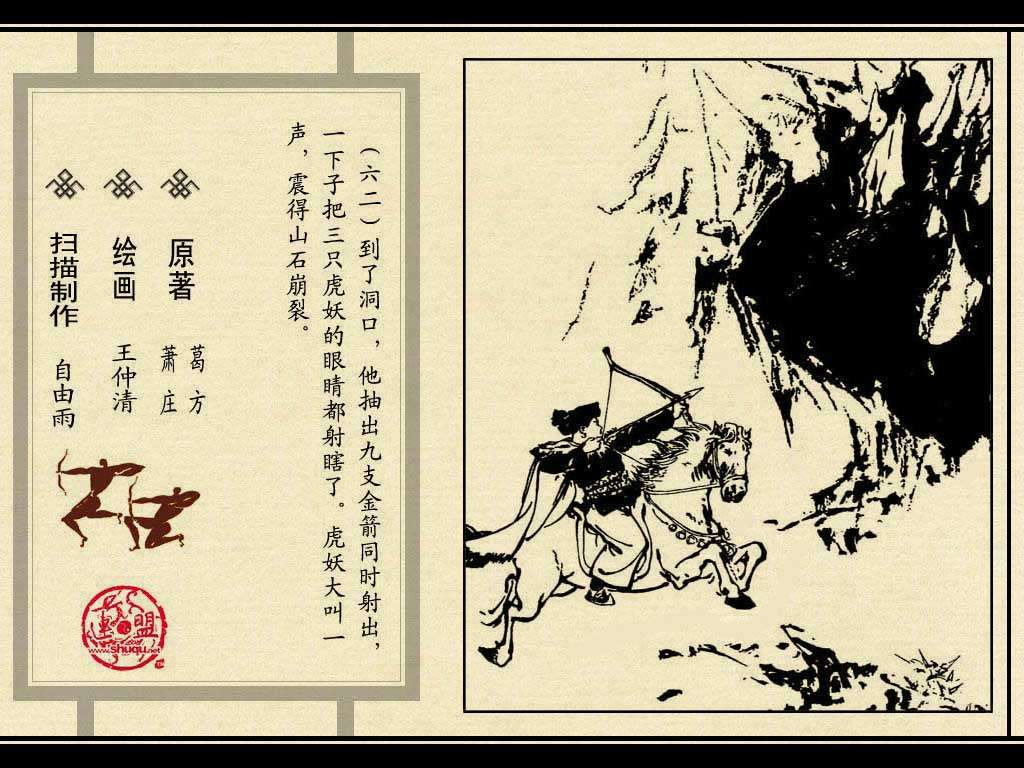 (六二)到了洞口，他抽出九支金箭同时射出，
一下子把三只虎妖的眼睛都射瞎了。虎妖大叫一
声，震得山石崩裂。
原著 葛方
萧庄
绘画 王仲清
扫描制作 自由雨
連盟
www.shuqu.net